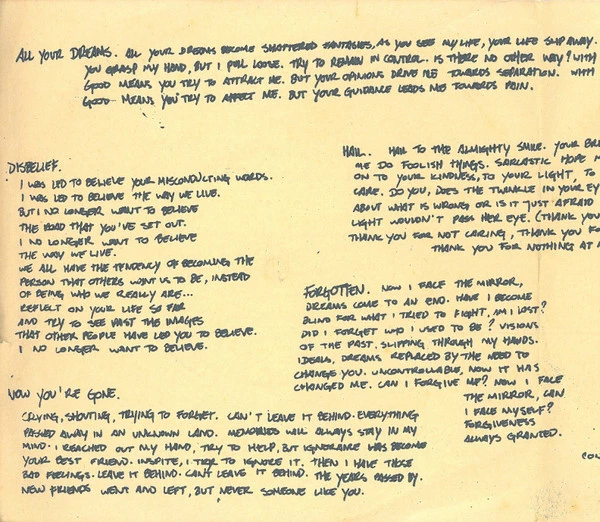 ALL YOUR DREAMS. ALL YOUR DREAMS BECOME SHATTERED FANTASIES, AS YOU SEE MY LIFE, YOUR LIFE SLIP AWAY.
YOU GRASP MY HAND, BUT I PULL LOOSE. TRY TO REMAIN IN CONTROL. IS THERE NO OTHER WAY? WITH
GOOD MEANS YOU TRY TO ATTRACT ME. BUT YOUR OPINIONS DRIVE ME TOWARDS SEPARATION. WITH
GOOD MEANS YOU TRY TO AFFECT ME. BUT YOUR GUIDANCE LEADS ME TOWARDS PAIN.
HAIL. HAIL TO THE ALMIGHTY SMILE. YOUR
ME DO FOOLISH THINGS. SARCASTIC HOPE
ON TO YOUR KINDNESS, TO YOUR LIGHT, TO
CARE. DO YOU, DOES THE TWINKLE IN YOUR
ABOUT WHAT IS WRONG OR IS IT JUST AFRAID
LIGHT WOULDN'T PASS HER EYE. (THANK YOU
THANK YOU FOR NOT CARING, THANK YOU
THANK YOU FOR NOTHING AT
DISBELIEF.
I WAS LED TO BELIEVE YOUR MISCONDUCTING WORDS.
I WAS LED TO BELIEVE THE WAY WE LIVE.
BUT I NO LONGER WANT TO BELIEVE
THE ROAD THAT YOU'VE SET OUT.
I NO LONGER WANT TO BELIEVE
THE WAY WE LIVE.
WE ALL HAVE THE TENDENCY OF BECOMING THE
PERSON THAT OTHERS WANT US TO BE, INSTEAD
OF BEING WHO WE REALLY ARE...
REFLECT ON YOUR LIFE SO FAR
AND TRY TO SEE PAST THE IMAGES
THAT OTHER PEOPLE HAVE LED YOU TO BELIEVE.
I NO LONGER WANT TO BELIEVE.
FORGOTTEN. NOW I FACE THE MIRROR,
DREAMS COME TO AN END. HAVE I BECOME
BLIND FOR WHAT I TRIED TO FIGHT, AM I LOST?
DID I FORGET WHO I USED TO BE? VISIONS
OF THE PAST, SLIPPING THROUGH MY HANDS.
IDEALS, DREAMS REPLACED BY THE NEED TO
CHANGE YOU. UNCONTROLLABLE, NOW IT HAS
CHANGED ME. CAN I FORGIVE ME? NOW I FACE
THE MIRROR, CAN
I FACE MYSELF?
FORGIVENESS
ALWAYS GRANTED.
NOW YOU'RE GONE.
CRYING, SHOUTING, TRYING TO FORGET. CAN'T LEAVE IT BEHIND. EVERYTHING
PASSED AWAY IN AN UNKNOWN LAND. MEMORIES WILL ALWAYS STAY IN MY
MIND. I REACHED OUT MY HAND, TRY TO HELP, BUT IGNORANCE WAS BECOME
YOUR BEST FRIEND. INSPITE, I TRY TO IGNORE IT. THEN I HAVE THOSE
BAD FEELINGS. LEAVE IT BEHIND. CAN'T LEAVE IT BEHIND. THE YEARS PASSED BY.
NEW FRIENDS WENT AND LEFT, BUT NEVER SOMEONE LIKE YOU.